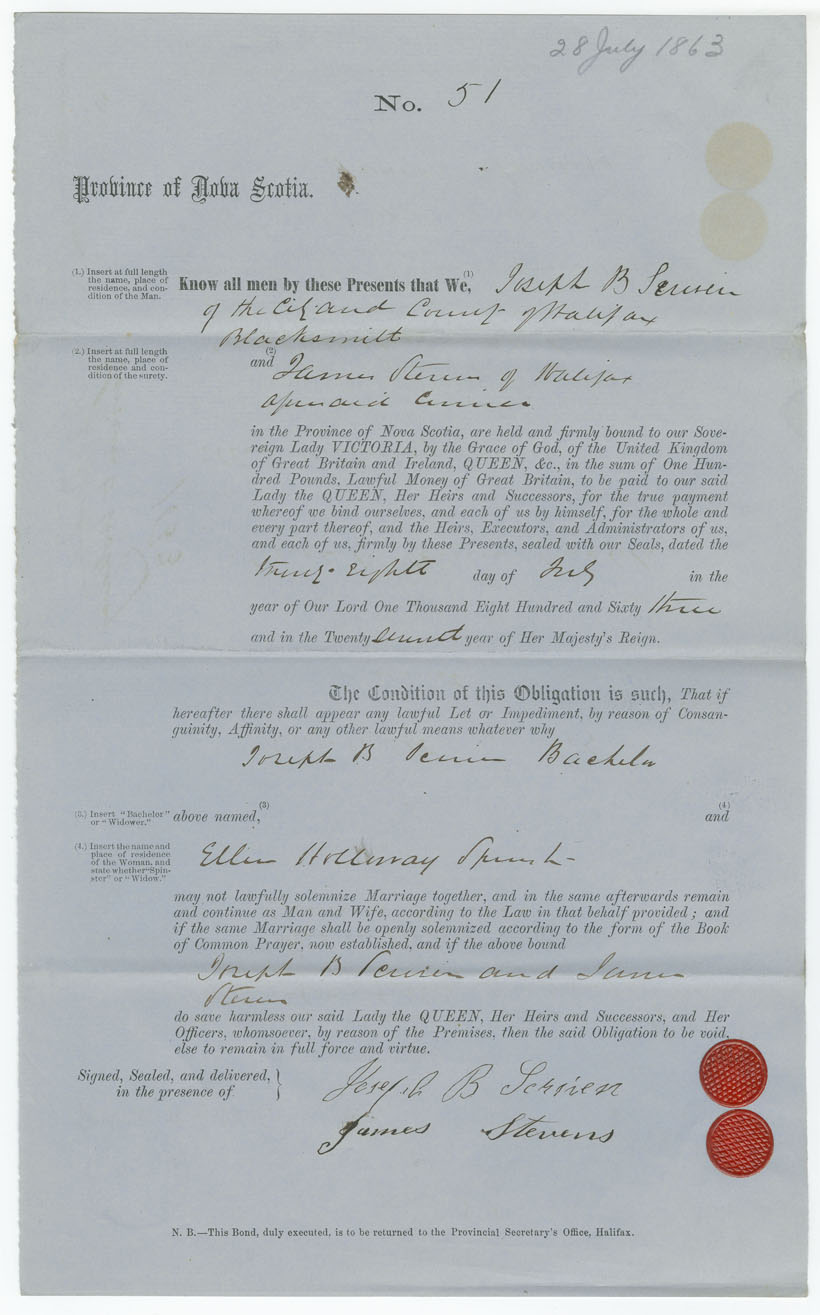 28 July 1863
No. 51
Province of Nova Scotia.
(1.) Insert at full length
the name, place of
residence, and con-
dition of the Man.
Know all men by these Presents that We, (1) Joseph B Scriven
of the City and County of Halifax
Blacksmith
(2.) Insert at full length
the name, place of
residence and con-
dition of the surety.
and (2) James Stevens of Halifax
aforesaid
in the Province of Nova Scotia, are held and firmly bound to our Sove-
reign Lady VICTORIA, by the Grace of God, of the United Kingdom
of Great Britain and Ireland, QUEEN, &c., in the sum of One Hun-
dred Pounds, Lawful Money of Great Britain, to be paid to our said
Lady the QUEEN, Her Heirs and Successors, for the true payment
whereof we bind ourselves, and each of us by himself, for the whole and
every part thereof, and the Heirs, Executors, and Administrators of us,
and each of us, firmly by these Presents, sealed with our Seals, dated the
Twenty Eighth day of July in the
year of Our Lord One Thousand Eight Hundred and Sixty three
and in the Twenty second year of Her Majesty's Reign.
The Condition of this Obligation is such, That if
hereafter there shall appear any lawful Let or Impediment, by reason of Consan-
guinity, Affinity, or any other lawful means whatever why
Joseph B Scriven Bachelor
(3.) Insert "Bachelor"
or "Widower."
above named, (3) (4) and
(4.) Insert the name and
place of residence
of the Woman, and
state whether "Spin-
ster" or "Widow."
Ellen Holloway Spinster
may not lawfully solemnize Marriage together, and in the same afterwards remain
and continue as Man and Wife, according to the Law in that behalf provided; and
if the same Marriage shall be openly solemnized according to the form of the Book
of Common Prayer, now established, and if the above bound
Joseph B Scriven and James
Stevens
do save harmless our said Lady the QUEEN, Her Heirs and Successors, and Her
Officers, whomsoever, by reason of the Premises, then the said Obligation to be void,
else to remain in full force and virtue.
Signed, Sealed, and delivered,
in the presence of
Joseph B Scriven
James Stevens
N. B.—This Bond, duly executed, is to be returned to the Provincial Secretary's Office, Halifax.